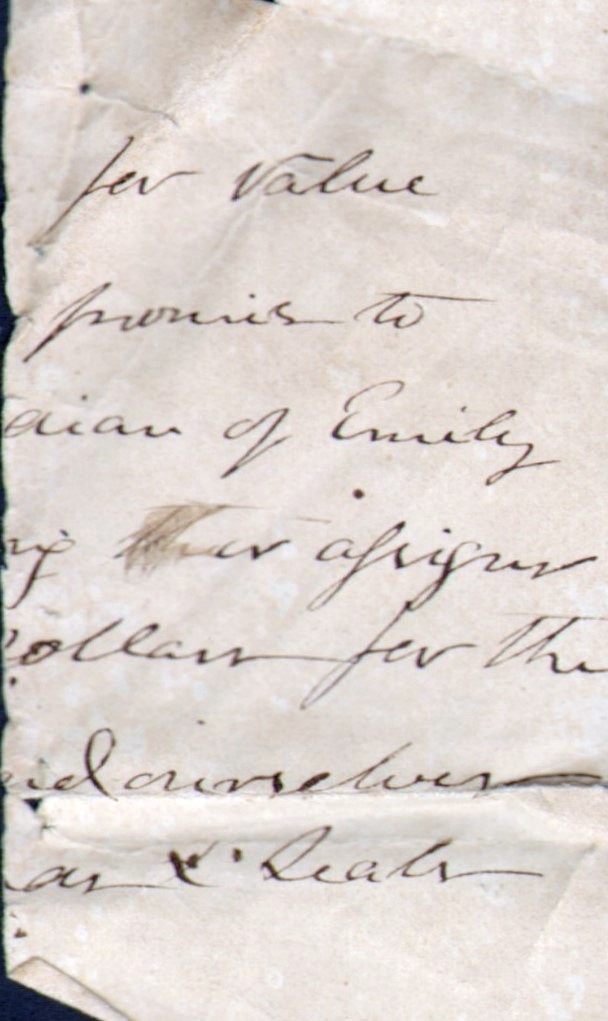 for value
promis to
dian of Emily
or assigns
Dollars for the
nd ourselves
& Seals